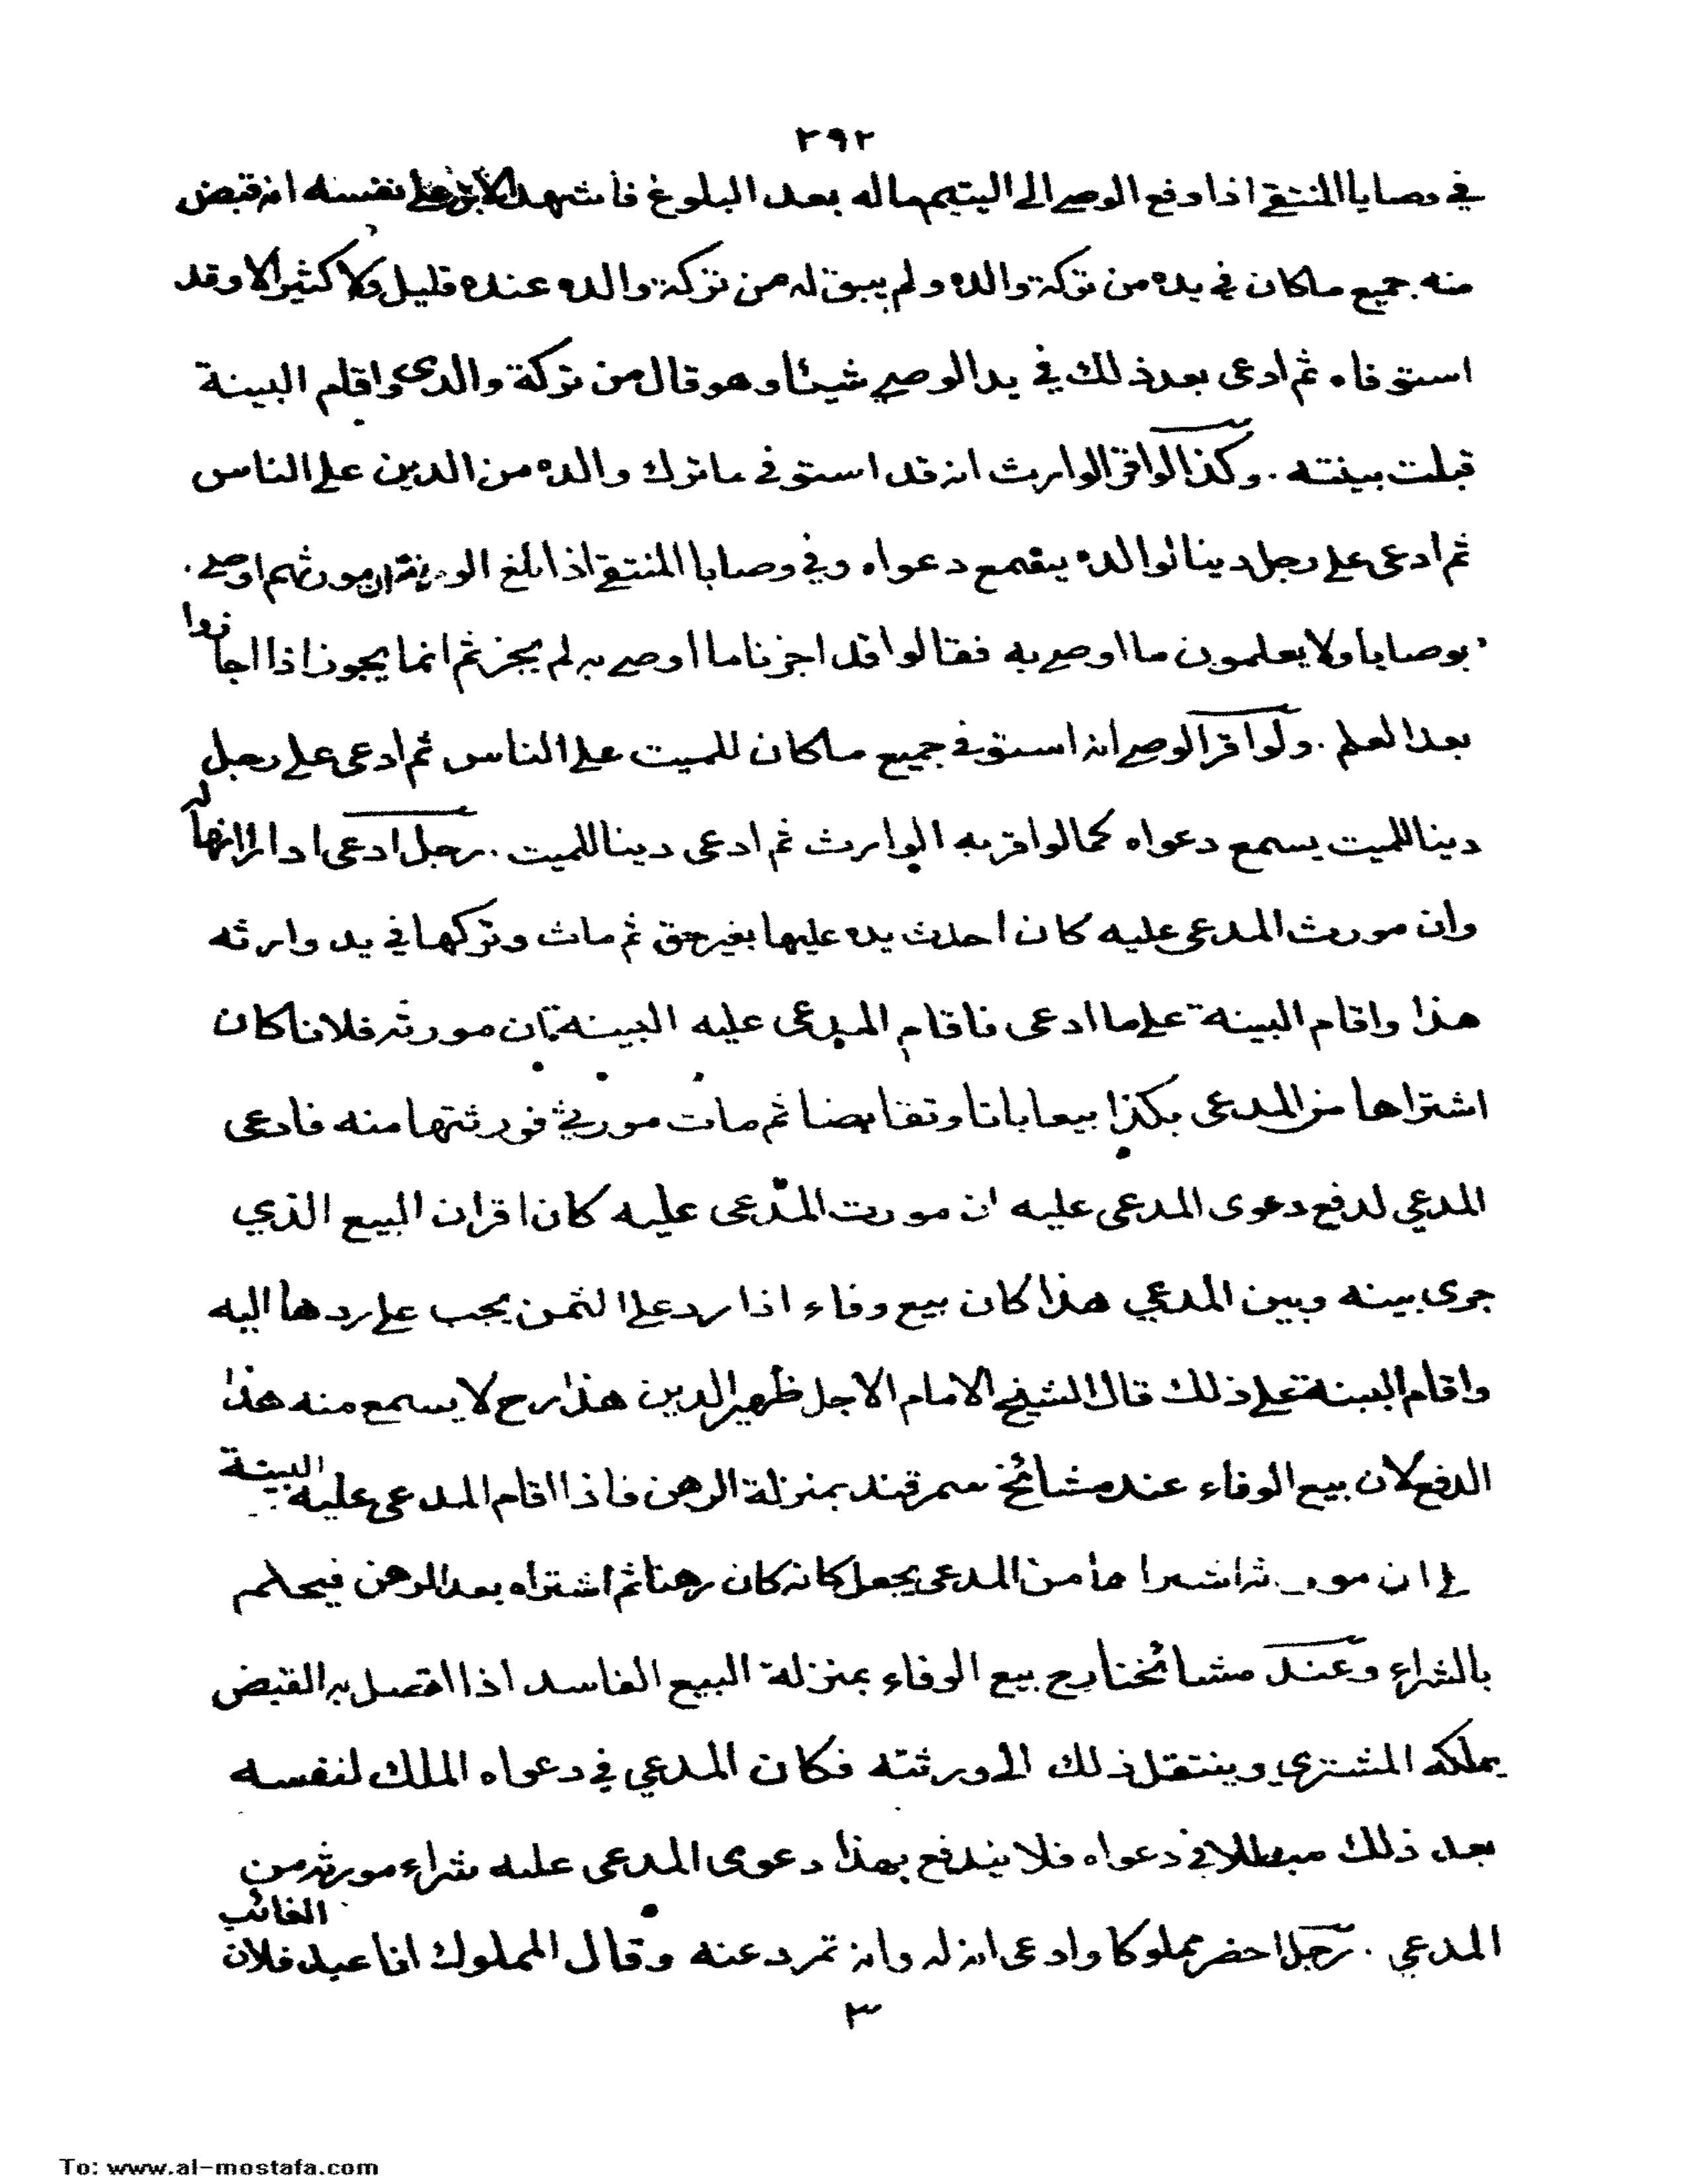 ٢٩٢
في وصايا المنتقى اذا دفع الوصي الى اليتيم ماله بعد البلوغ فأشهد الابن على نفسه انه قبض
منه جميع ماكان في يده من تركة والده ولم يبق له من تركة والده عنده قليل ولا كثير الا وقد
استوفاه ثم ادعى بعد ذلك في يد الوصي شيئا وهو قال من تركة والدى واقام البينة
قبلت بينته . وكذا لو اقر الوارث انه قد استوفى ماترك والده من الدين على الناس
ثم ادعى على رجل دينا لوالده يسمع دعواه وفي وصايا المنتقى اذا بلغ الورثة ان مورثهم اوصى
بوصايا ولا يعلمون ما اوصى به فقالوا قد اجزنا ما اوصى به لم يجز ثم انما يجوز اذا اجازوا
بعد العلم . ولو اقر الوصي انه استوفى جميع ماكان للميت على الناس ثم ادعى على رجل
دينا للميت يسمع دعواه كما لو اقر به الوارث ثم ادعى دينا للميت . رجل ادعى دارا انها له
وان مورث المدعى عليه كان احدث يده عليها بغير حق ثم مات وتركها في يد وارثه
هذا واقام البينة على ما ادعى فاقام المدعى عليه البينة ان مورثه فلانا كان
اشتراها من المدعى بكذا بيعا باتا وتقابضا ثم مات مورثي فورثتها منه فادعى
المدعي لدفع دعوى المدعى عليه ان مورث المدعى عليه كان اقر ان البيع الذي
جرى بينه وبين المدعي هذا كان بيع وفاء اذا رد على الثمن يجب على ردها اليه
واقام البينة على ذلك قال الشيخ الامام الاجل ظهير الدين هذا رح لا يسمع منه هذا
الدفع لان بيع الوفاء عند مشائخ سمرقند بمنزلة الرهن فاذا اقام المدعى عليه البينة
ان مورثه اشتراها من المدعى يجعل كانه كان رهنا ثم اشتراه بعد الرهن فيحكم
بالشراء وعند مشائخنا رح بيع الوفاء بمنزلة البيع الفاسد اذا اتصل به القبض
يملكه المشتري وينتقل ذلك الى ورثته فكان المدعي في دعواه الملك لنفسه
بعد ذلك مبطلا في دعواه فلا يندفع بهذا دعوى المدعى عليه شراء مورثه من
المدعي . رجل احضر مملوكا وادعى انه له وانه تمرد عنه وقال المملوك انا عبد فلان الغائب
٣
To: www.al-mostafa.com